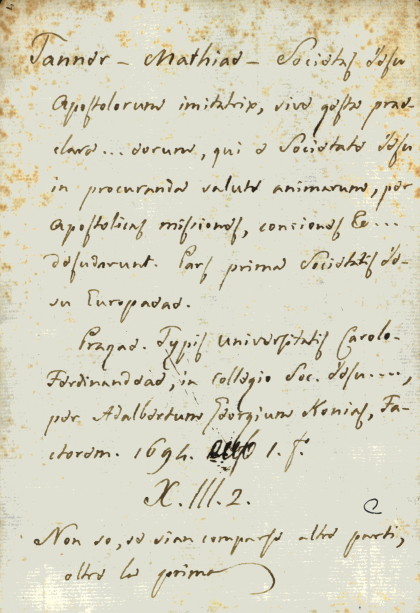 Tanner – Mathiae – Societas Jesu
Apostolorum imitatrix, sive gesta prae-
clara ... eorum, qui e Societate Jesu
in procuranda salute animarum, per
Apostolicas missiones, conciones &c ...
desudarunt. Pars prima Societatis Je-
su Europaeae.
Pragae. Typis Universitatis Carolo-
Ferdinandeae, in collegio Soc. Jesu ...,
per Adalbertum Georgium Konias, Fa-
ctorem. 1694. 1. f.
X. III. 2.
C
Non so, se sian comparse altre parti,
oltre la prima